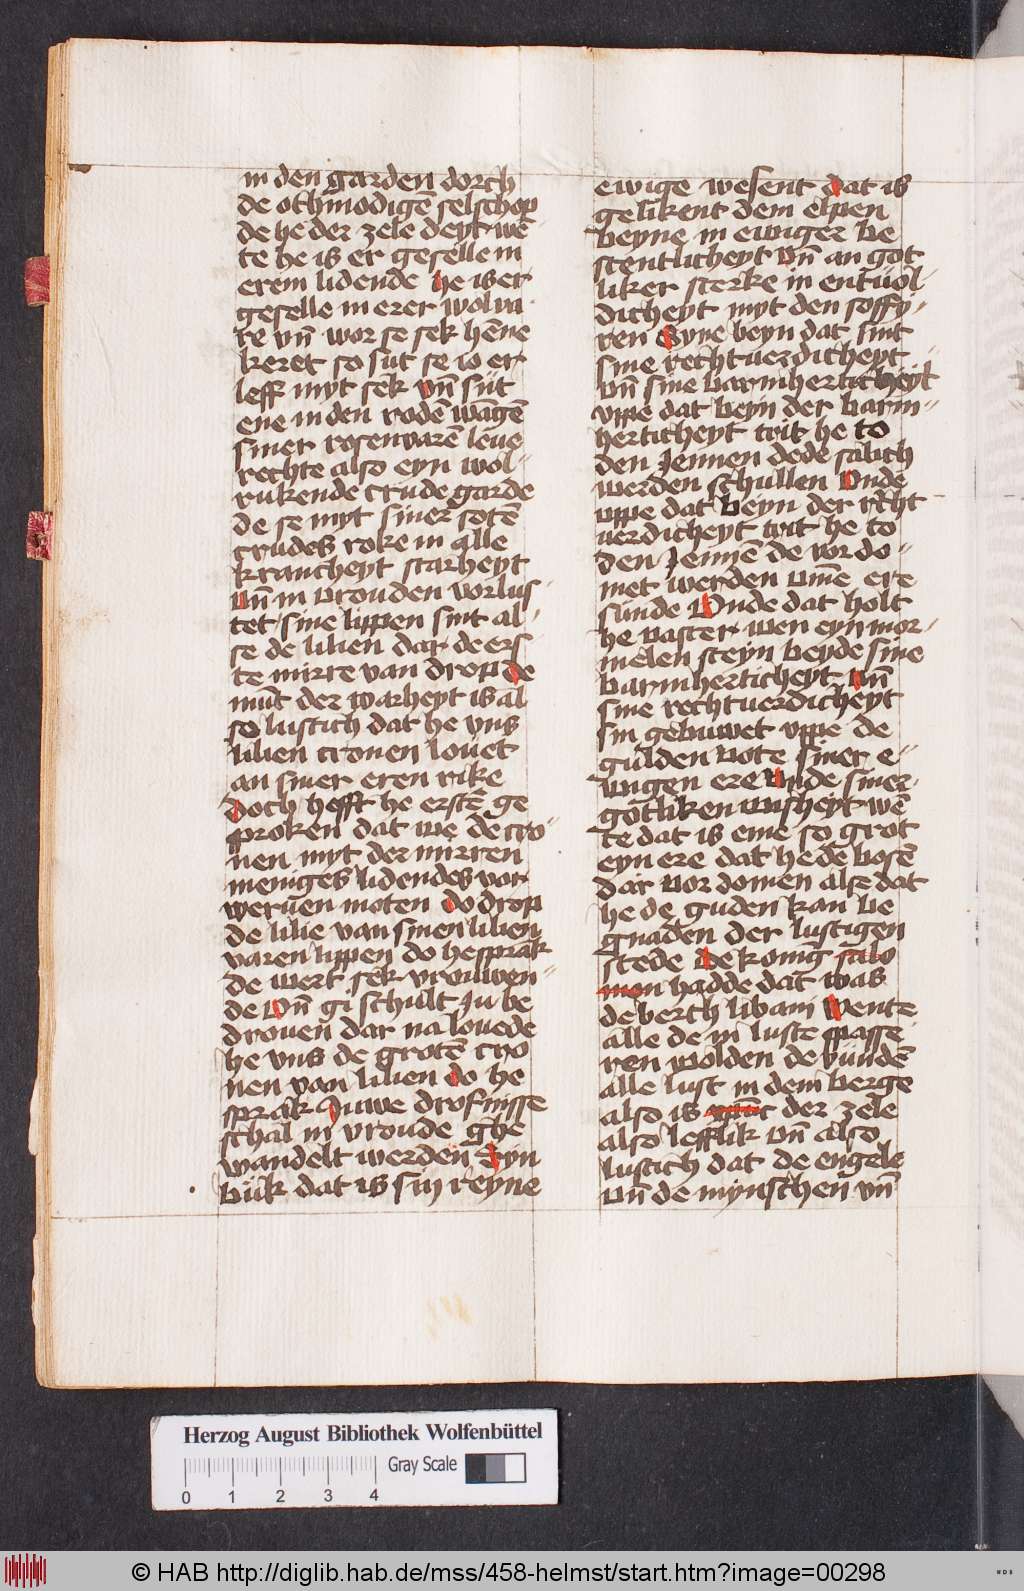 in den garden dorch
de othmodigē selschop
de he der zele deyt wē
te he is er geselle in
erem lidende he is er
geselle in erer wolva
re vn̄ wor se sek hēne
keret so sut se io er
leff myt sek vn̄ sut
ene in den rodē wagē
siner rosenvarē leue
rechte also eyn wol-
rukende crude garde
de se myt siner sotē
crudes roke in alle
krancheyt starheyt
vn̄ in vrouden vorlus-
tet sine lippen sint al-
se de lilien dar de ers
te mirre van drop de
mūt der warheyt is al
so lustich dat he vns
lilien cronen louet
an siner eren rike
doch hefft he erstē ge
sproken dat we de cro-
nen myt der mirren
meniges lidendes vor
weruen moten do drop
de lilie van sinen lilien
varen lippen do he sprak
de wert sek vrouwen-
de vn̄ gi schult Ju be
drouen dar na louede
he vns de grotē cro
nen van lilien do he
sprak Juwe drofnisse
schal in vroude ghe
wandelt werden Syn
buk dat is sin reyne
ewige wesent dat is
gelikent dem elpen
beyne in ewiger be
stentlicheyt vn̄ an got
liker sterke in entuol-
dicheyt myt den soffy-
ren Syne beyn dat sint
sine rechtuerdicheyt
vn̄ sine barmherticheyt
vppe dat beyn der barm-
herticheyt trit he to
den Jennen dede salich
werden schullen Unde
vppe dat beyn der recht
uerdicheyt trit he to
den Jennē de vordo-
met werden vmē ere
sunde Unde dat holt
he vaster wen eyn mor-
melen steyn beyde sine
barmherticheyt vn̄
sine rechtuerdicheyt
sin gebuwet vppe de
gulden vote siner e-
wigen ere Unde siner
gotliken wisheyt wē
te dat is eme so grot
eyn ere dat he de bosē
dar vordomen alse dat
he de guden kan be
gnaden der lustigen
stede De konīg salo
mon hadde dat was
de berch libani Wente
alle de in luste spasse
ren wolden de vundē
alle lust in dem berge
also is der zele
also lefflik vn̄ also
lustich dat de engele
vn̄ de mynschen vn̄
Herzog August Bibliothek Wolfenbüttel
Gray Scale
0 1 2 3 4
© HAB http://diglib.hab.de/mss/458-helmst/start.htm?image=00298